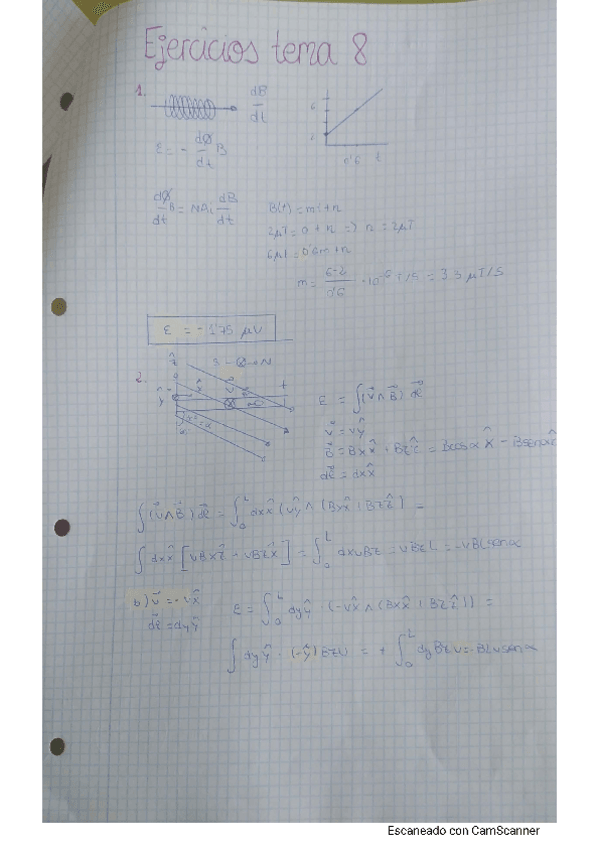 Ejercicios tema 8
1.
dB
dt
6
2
0'6 t
ε = - dØ/dt B
dØ/dt B = NA₁ dB/dt
B(t) = mt+n
2μT = 0 + n => n = 2μT
6μT = 0'6m+n
m = 6-2/0'6 · 10⁻⁶ T/s = 3.3 μT/s
ε = -1'75 μV
2.
ε = ∫(v⃗∧B⃗) dℓ⃗
v⃗ = vŷ
B⃗ = Bx x̂ + Bz ẑ = Bcosα x̂ - Bsenα ẑ
dℓ⃗ = dx x̂
∫(v⃗∧B⃗) dℓ⃗ = ∫₀ᴸ dx x̂ (vŷ ∧ (Bx x̂ + Bz ẑ) =
∫ dx x̂ [vBx ẑ + vBz x̂] = ∫₀ᴸ dx vBz = vBz L = -vBLsenα
b) v⃗ = -vx̂
ε = ∫₀ᴸ dy ŷ · (-vx̂ ∧ (Bx x̂ + Bz ẑ)) =
dℓ⃗ = dy ŷ
∫ dy ŷ · (-ŷ) Bz v = + ∫₀ᴸ dy Bz v = -BLv senα
Escaneado con CamScanner